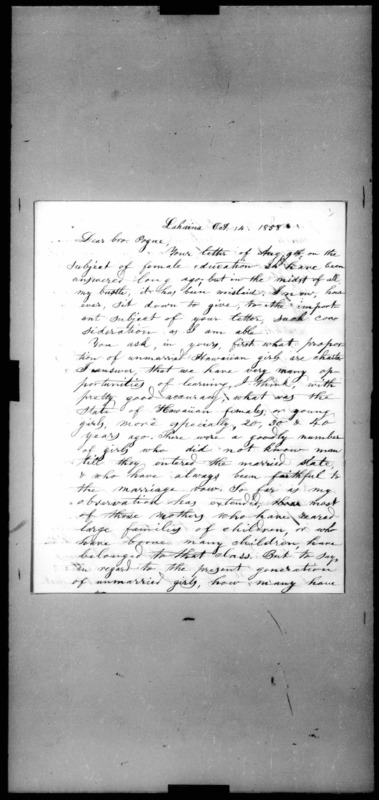 Lahaina Oct. 14. 1858
Dear bro. Pogue,
Your letter of Aug. 9th, on the
subject of female education sh. have been
answered long ago, but in the midst of all
my bustle, it has been mislaid. I now, how
ever, sit down to give, to the import
ant subject of your letter, such con
sideration as I am able
You ask, in yours, first what propor
tion of unmarried Hawaiian girls are chaste
I answer, that we have very many op-
portunities of learning, I think with
pretty good accuracy, what was the
state of Hawaiian females, or young
girls, more especially, 20, 30 & 40
years ago. There were a goodly number
of girls who did not know man
till they entered the married state,
& who have always been faithful to
the marriage vow. So far as my
observation has extended, most
of those mothers who have reared
large families of children, or who
have borne many children, have
belonged to that class. But to say,
in regard to the present generation
of unmarried girls, how many have